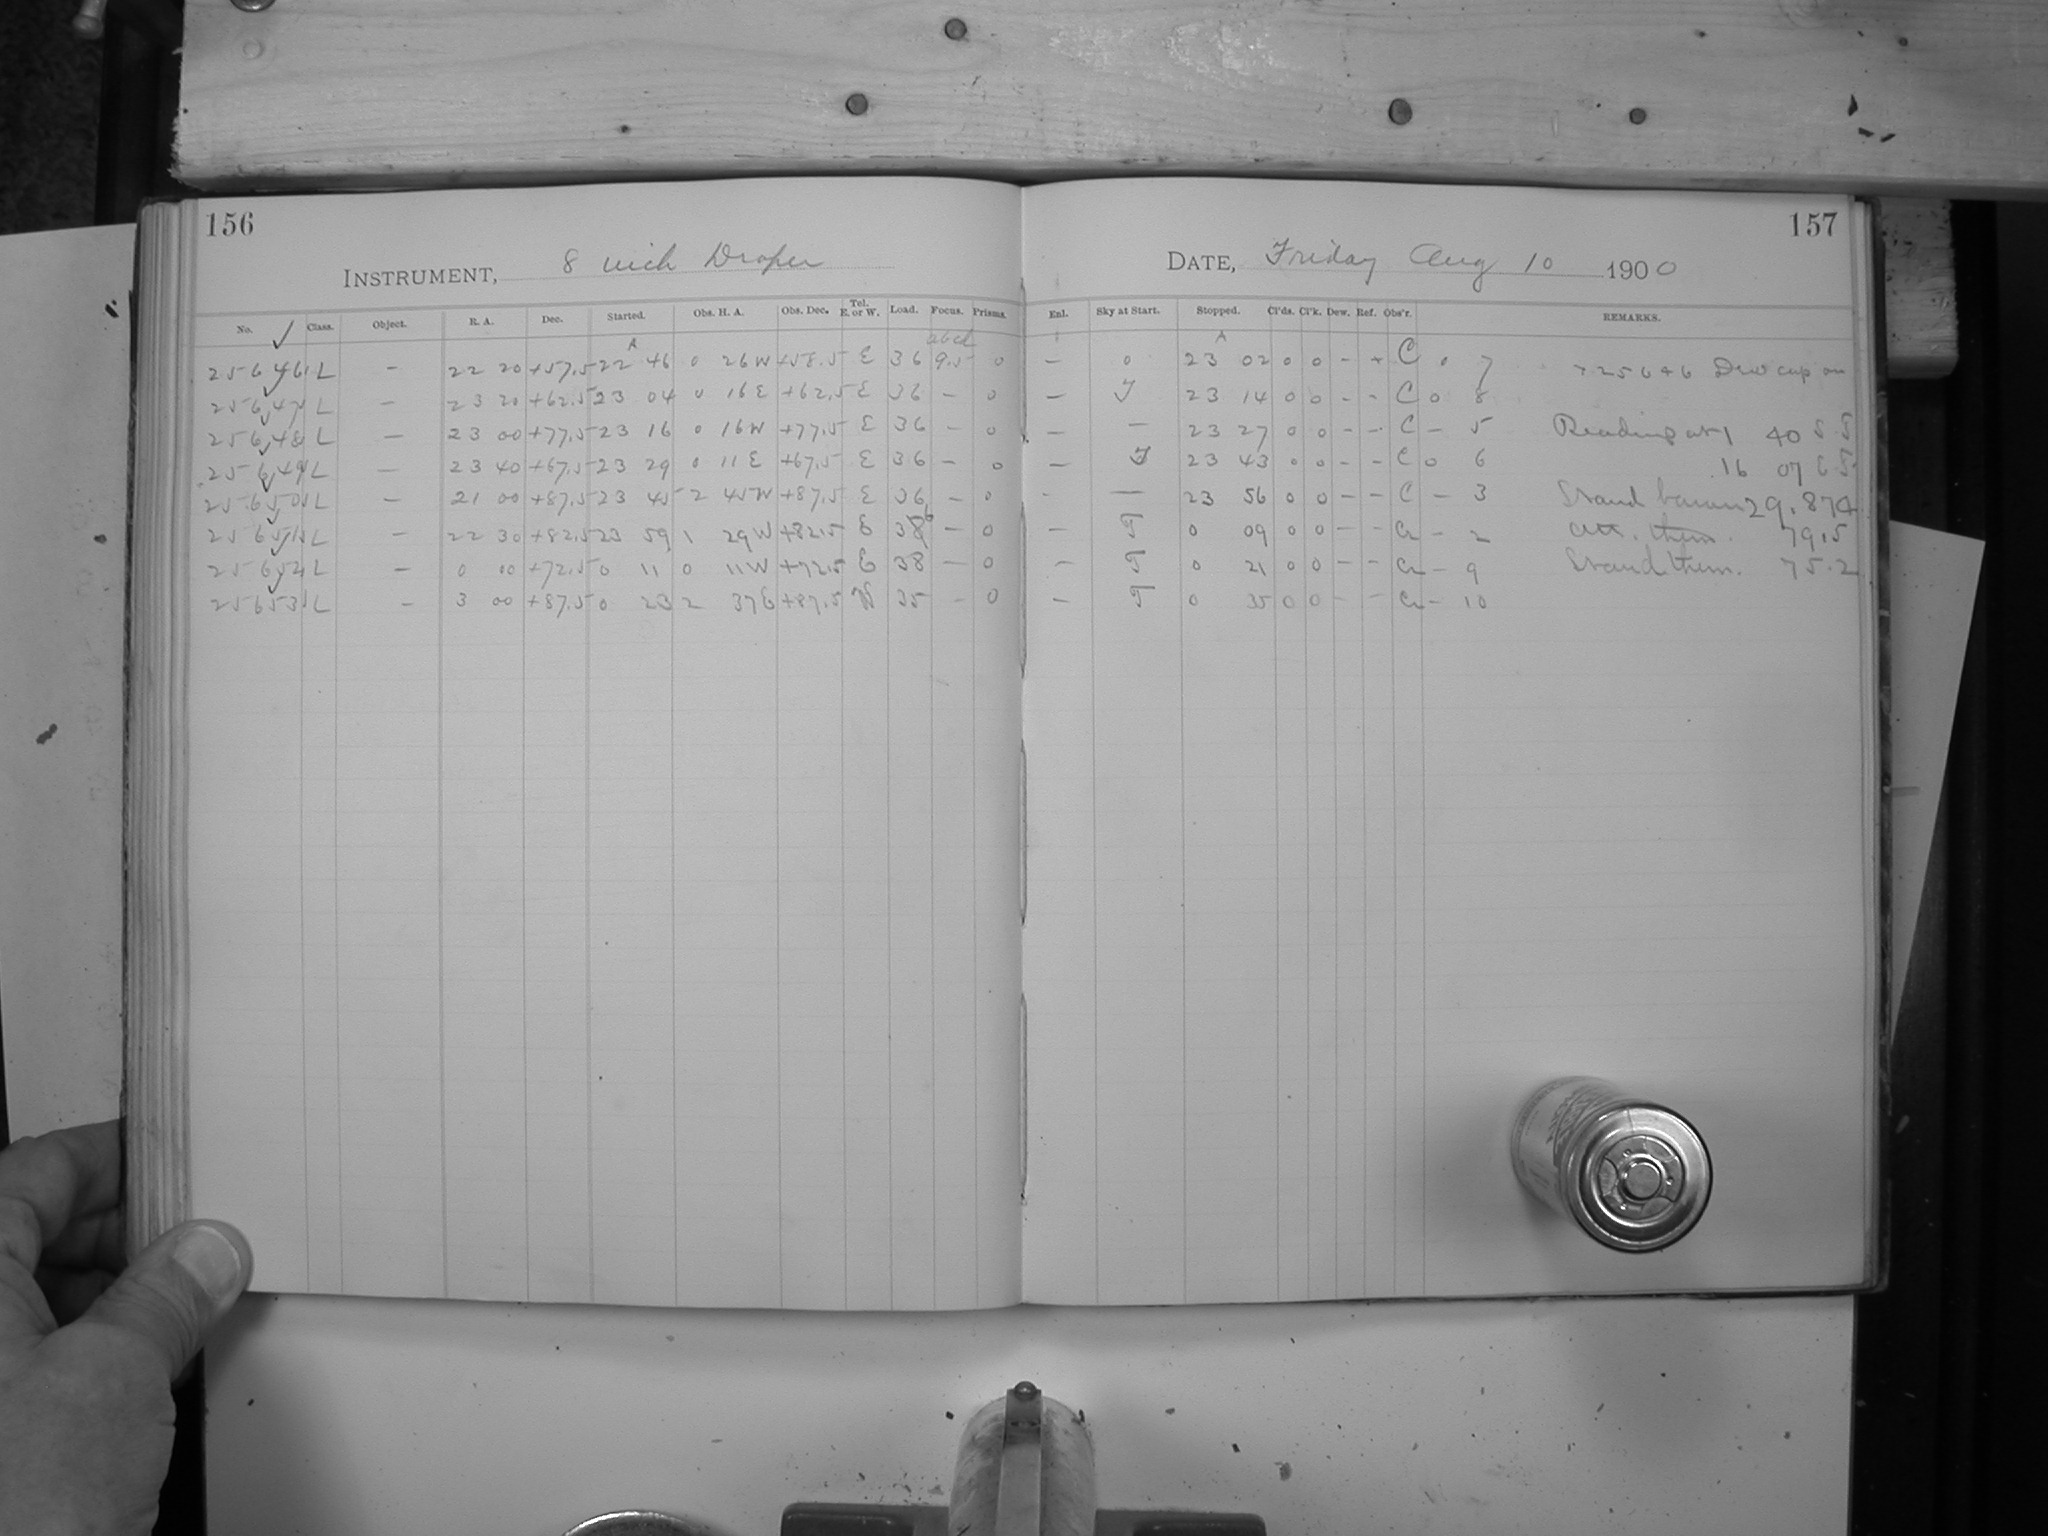 156
157
INSTRUMENT, 8 inch Draper
DATE, Friday Aug 10 1900
No. ✓ Class. Object. R. A. Dec. Started. Obs. H. A. Obs. Dec. Tel. E. or W. Load. Focus. Prisms. Enl. Sky at Start. Stopped. Cl'ds. Cl'k. Dew. Ref. Obs'r. REMARKS.
A abcd A
25646 L — 22 20 +57.5 22 46 0 26 W +58.5 E 36 9.5 0 — 0 23 02 0 0 - + C 0 7 25646 Dew cap on
25647 L — 23 20 +62.5 23 04 0 16 E +62.5 E 36 — 0 — 23 14 0 0 - - C 0 8
25648 L — 23 00 +77.5 23 16 0 16 W +77.5 E 36 — 0 — — 23 27 0 0 - - C — 5 Reading at 1 40 5 5
25649 L — 23 40 +67.5 23 29 0 11 E +67.5 E 36 — 0 — 23 43 0 0 - - C 0 6 16 07
25650 L — 21 00 +87.5 23 45 2 45 W +87.5 E 36 — 0 - — 23 56 0 0 - - C — 3 Stand barom 29.874
25651 L — 22 30 +82.5 23 59 1 29 W +82.5 E — 0 — 0 09 0 0 - - Cr — 2 att. therm. 79.5
25652 L — 0 00 +72.5 0 11 0 11 W +72.5 E 38 — 0 — 0 21 0 0 - - Cr — 9 Stand therm. 75.2
25653 L — 3 00 +87.5 0 23 2 37 E +87.5 W 35 — 0 — 0 35 0 0 - - Cr — 10